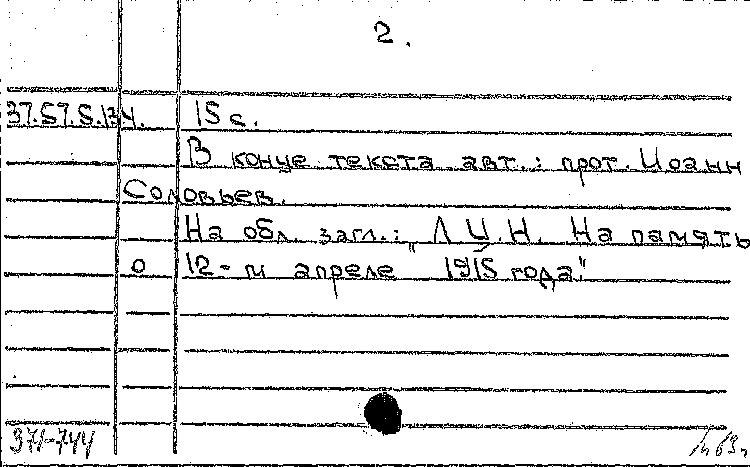 2.
37.57.5.134. 15 с.
В конце текста авт.: прот. Иоанн
Соловьев.
На обл. загл.: „Л.Ц.Н. На память
о 12-м апреле 1915 года"
371-744